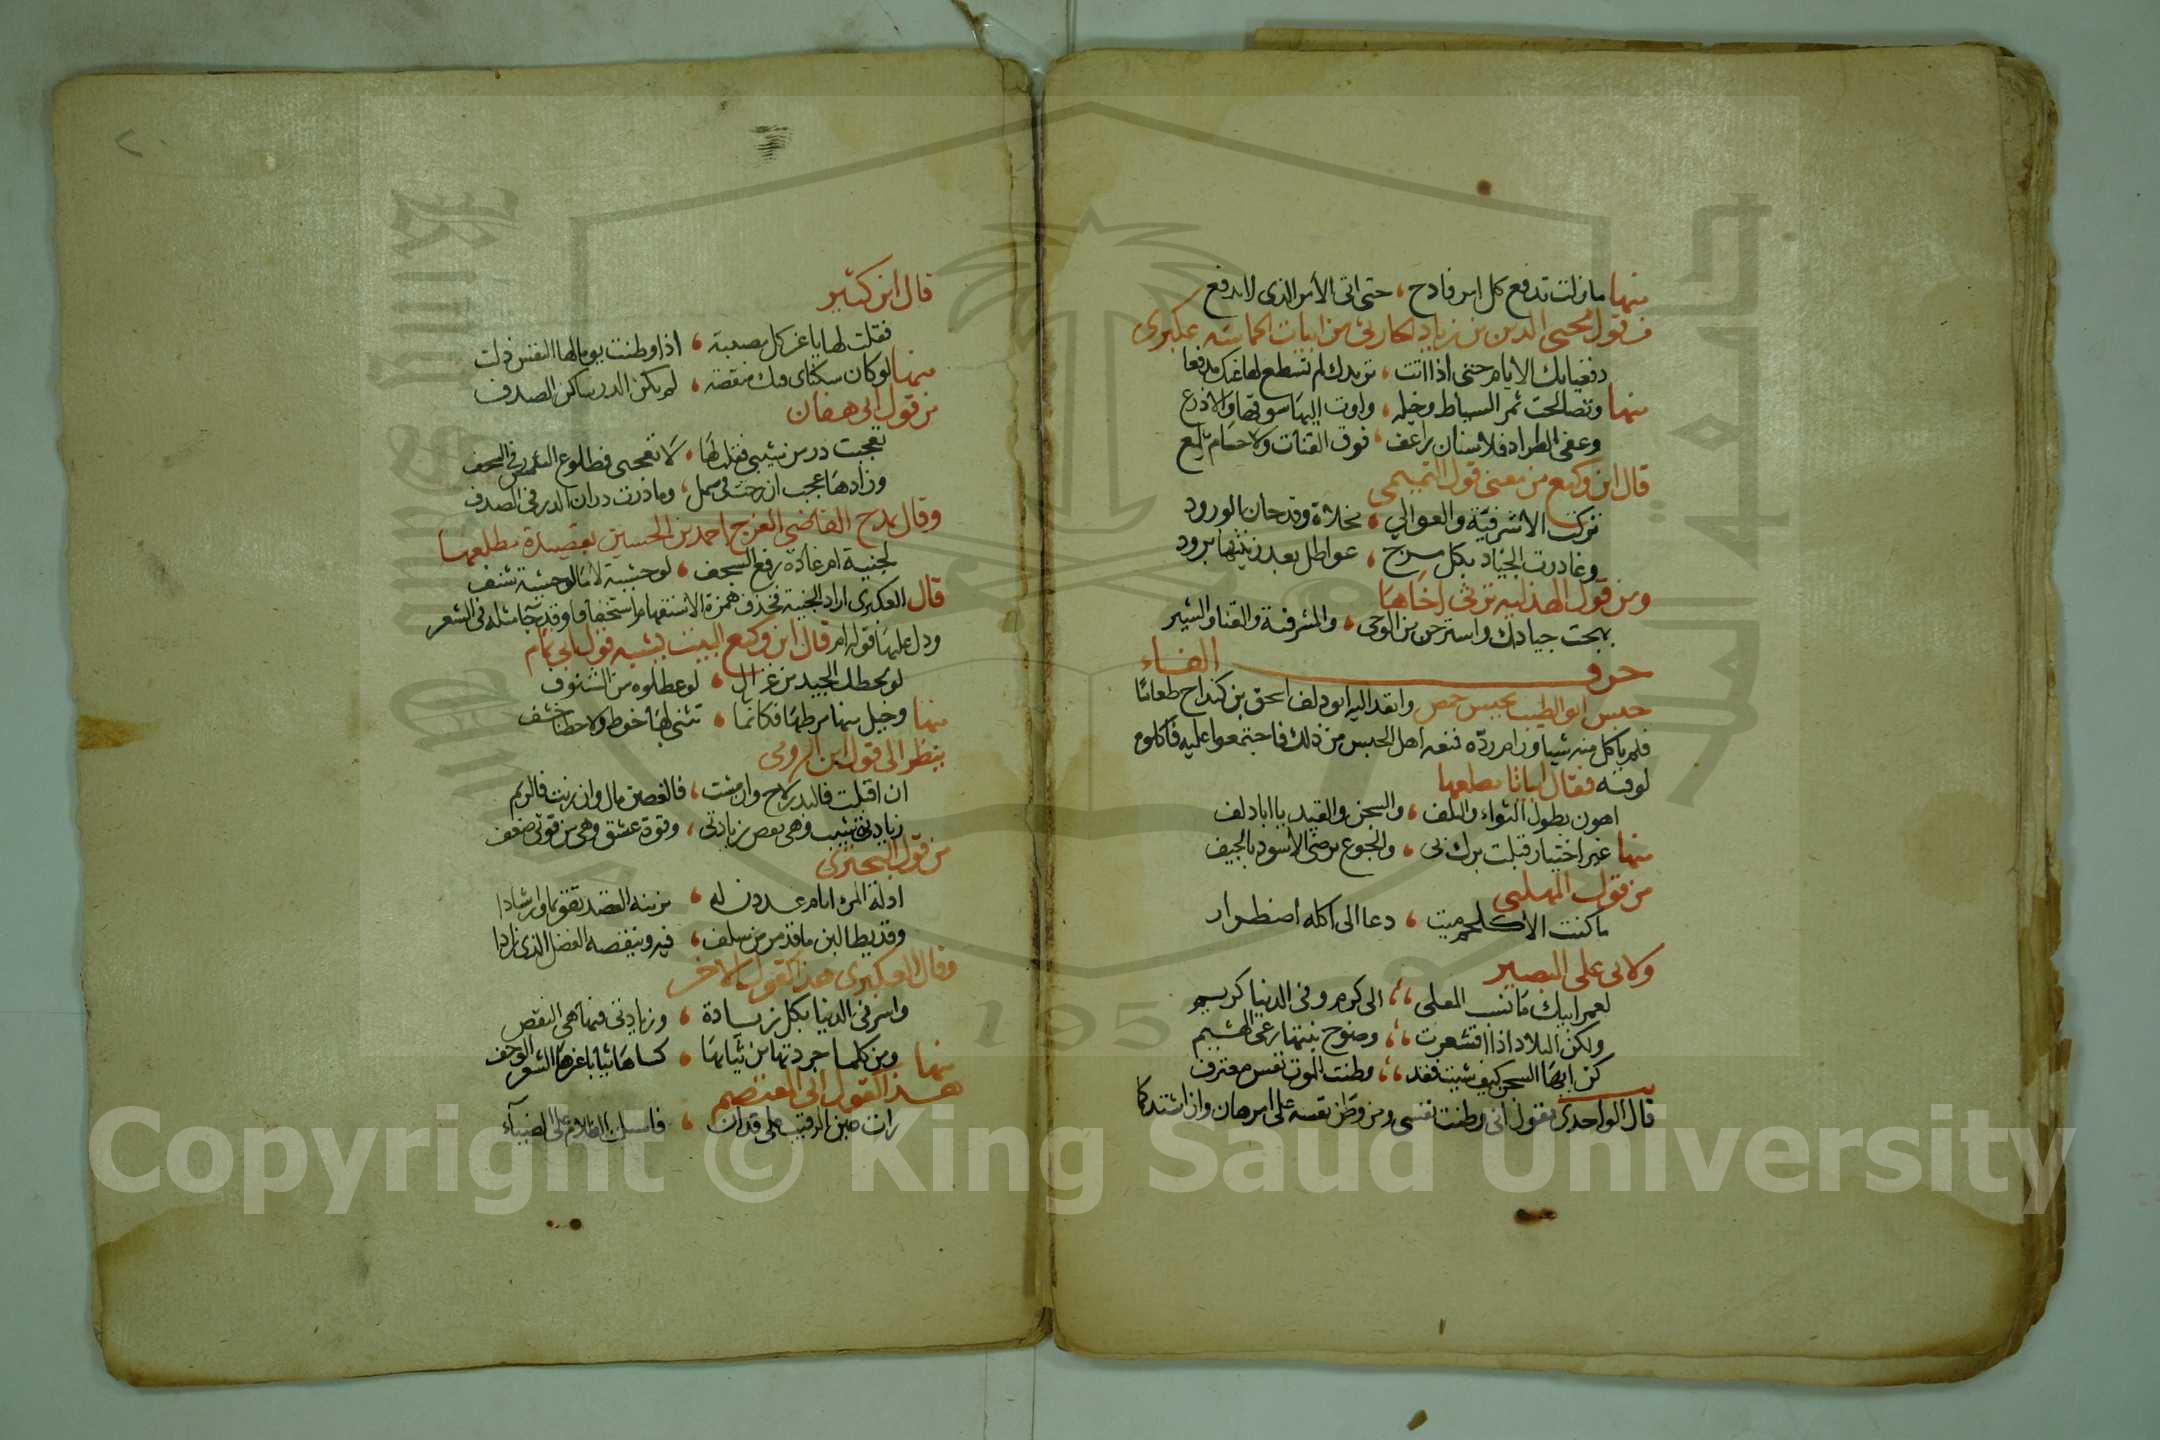 منها ما زلت تدفع كل امر فادح ، حتى اتى الامر الذى لا يدفع
من قول محيى الدين بن زياد الحارثى من ابيات الحماسة عكبرى
دفعنا بك الايام حتى اذا اتت ، تريدك لم تسطع لها عنك مدفعا
منها وتصالحت ثمر السياط وخيله ، واوت اليها سوقها والاذرع
وعفى الطراد فلا سنان راعف ، فوق القنات ولا حسام يلمع
قال ابن وكيع من معنى قول التميمى
تركت الاشرفية والعوالي ، مخلاة وقد حان الورود
وغادرت الجياد بكل مرج ، عواطل بعد زينتها برود
ومن قول الهذلية ترثى اخاها
بجحت جيادك واسترحن من الوحى ، والمشرفية والقنا والشير
حرف الفاء
حبس ابو الطيب بحبس حمص وانفد اليه ابو دلف اسحق بن كنداج طعاما
فلم ياكل منه شيا ورام رده فمنعه اهل الحبس من ذلك فاجتمعوا عليه فاكلوه
لوقته فقال ابياتا مطلعها
اهون بطول الثواء والتلف ، والسجن والقيد يا ابا دلف
منها غير اختيار قبلت برك بى ، والجوع يرضى الاسود بالجيف
من قول المهلبى
ما كنت الا كلحم ميت ، دعا الى اكله اضطرار
ولابى على البصير
لعمر ابيك ما نسب المعلى ،، الى كرم وفى الدنيا كريم
ولكن البلاد اذا اقشعرت ،، وصوح نبتها رعى الهشيم
كن ايها السجن كيف شيت فقد ،، وطنت للموت نفس معترف
قال الواحدى يقول انى وطنت نفسى ومن وطن نفسه على امر هان وان اشتد كما
قال ابن كثير
فقلت لها يا عز كل مصيبة ، اذا وطنت يوما لها النفس ذلت
منها لو كان سكناى فيك منقصة ، لم يكن الدر ساكن الصدف
من قول ابى هفان
تعجبت در من شيبى فقلت لها ، لا تعجبى فطلوع البدر فى السجف
وزادها عجب ان رحت فى سمل ، وما درت در ان الدر فى الصدف
وقال يمدح القاضى ابا الفرج احمد بن الحسين بقصيدة مطلعها
لجنية ام غادة رفع السجف ، لوحشية لا ما لوحشية شنف
قال العكبرى اراد الجنية فحذف همزة الاستفهام استخفافا وقد جا مثله فى الشعر
ودل عليها قوله ام قال ابن وكيع البيت يشبه قول ابى تمام
لو تخطت الجيد من غزال ، لو عطلوه من الشنوف
منها وخيل منها مرطها فكانما ، تثنى لها خوط ولاحظنا خشف
ينظر الى قول ابن الرومى
ان اقبلت فالبدر لاح وان مشت ، فالغصن مال وان رنت فالريم
زيادة شيب وهى نقص زيادتى ، وقوة عشق وهى من قوتى ضعف
من قول البحترى
وقال العكبرى هذا كقول الاخر
واسر فى الدنيا بكل زيادة ، وزيادتى فيها هى النقص
منها ومن كلما جردتها من ثيابها ، كساها ثيابا غيرها الشعر الوحف
هذا كقول ابى المعتصم
رات عين الرقيب على قدان ، فاسبلت الظلام على الضياء
Copyright © King Saud University
1957